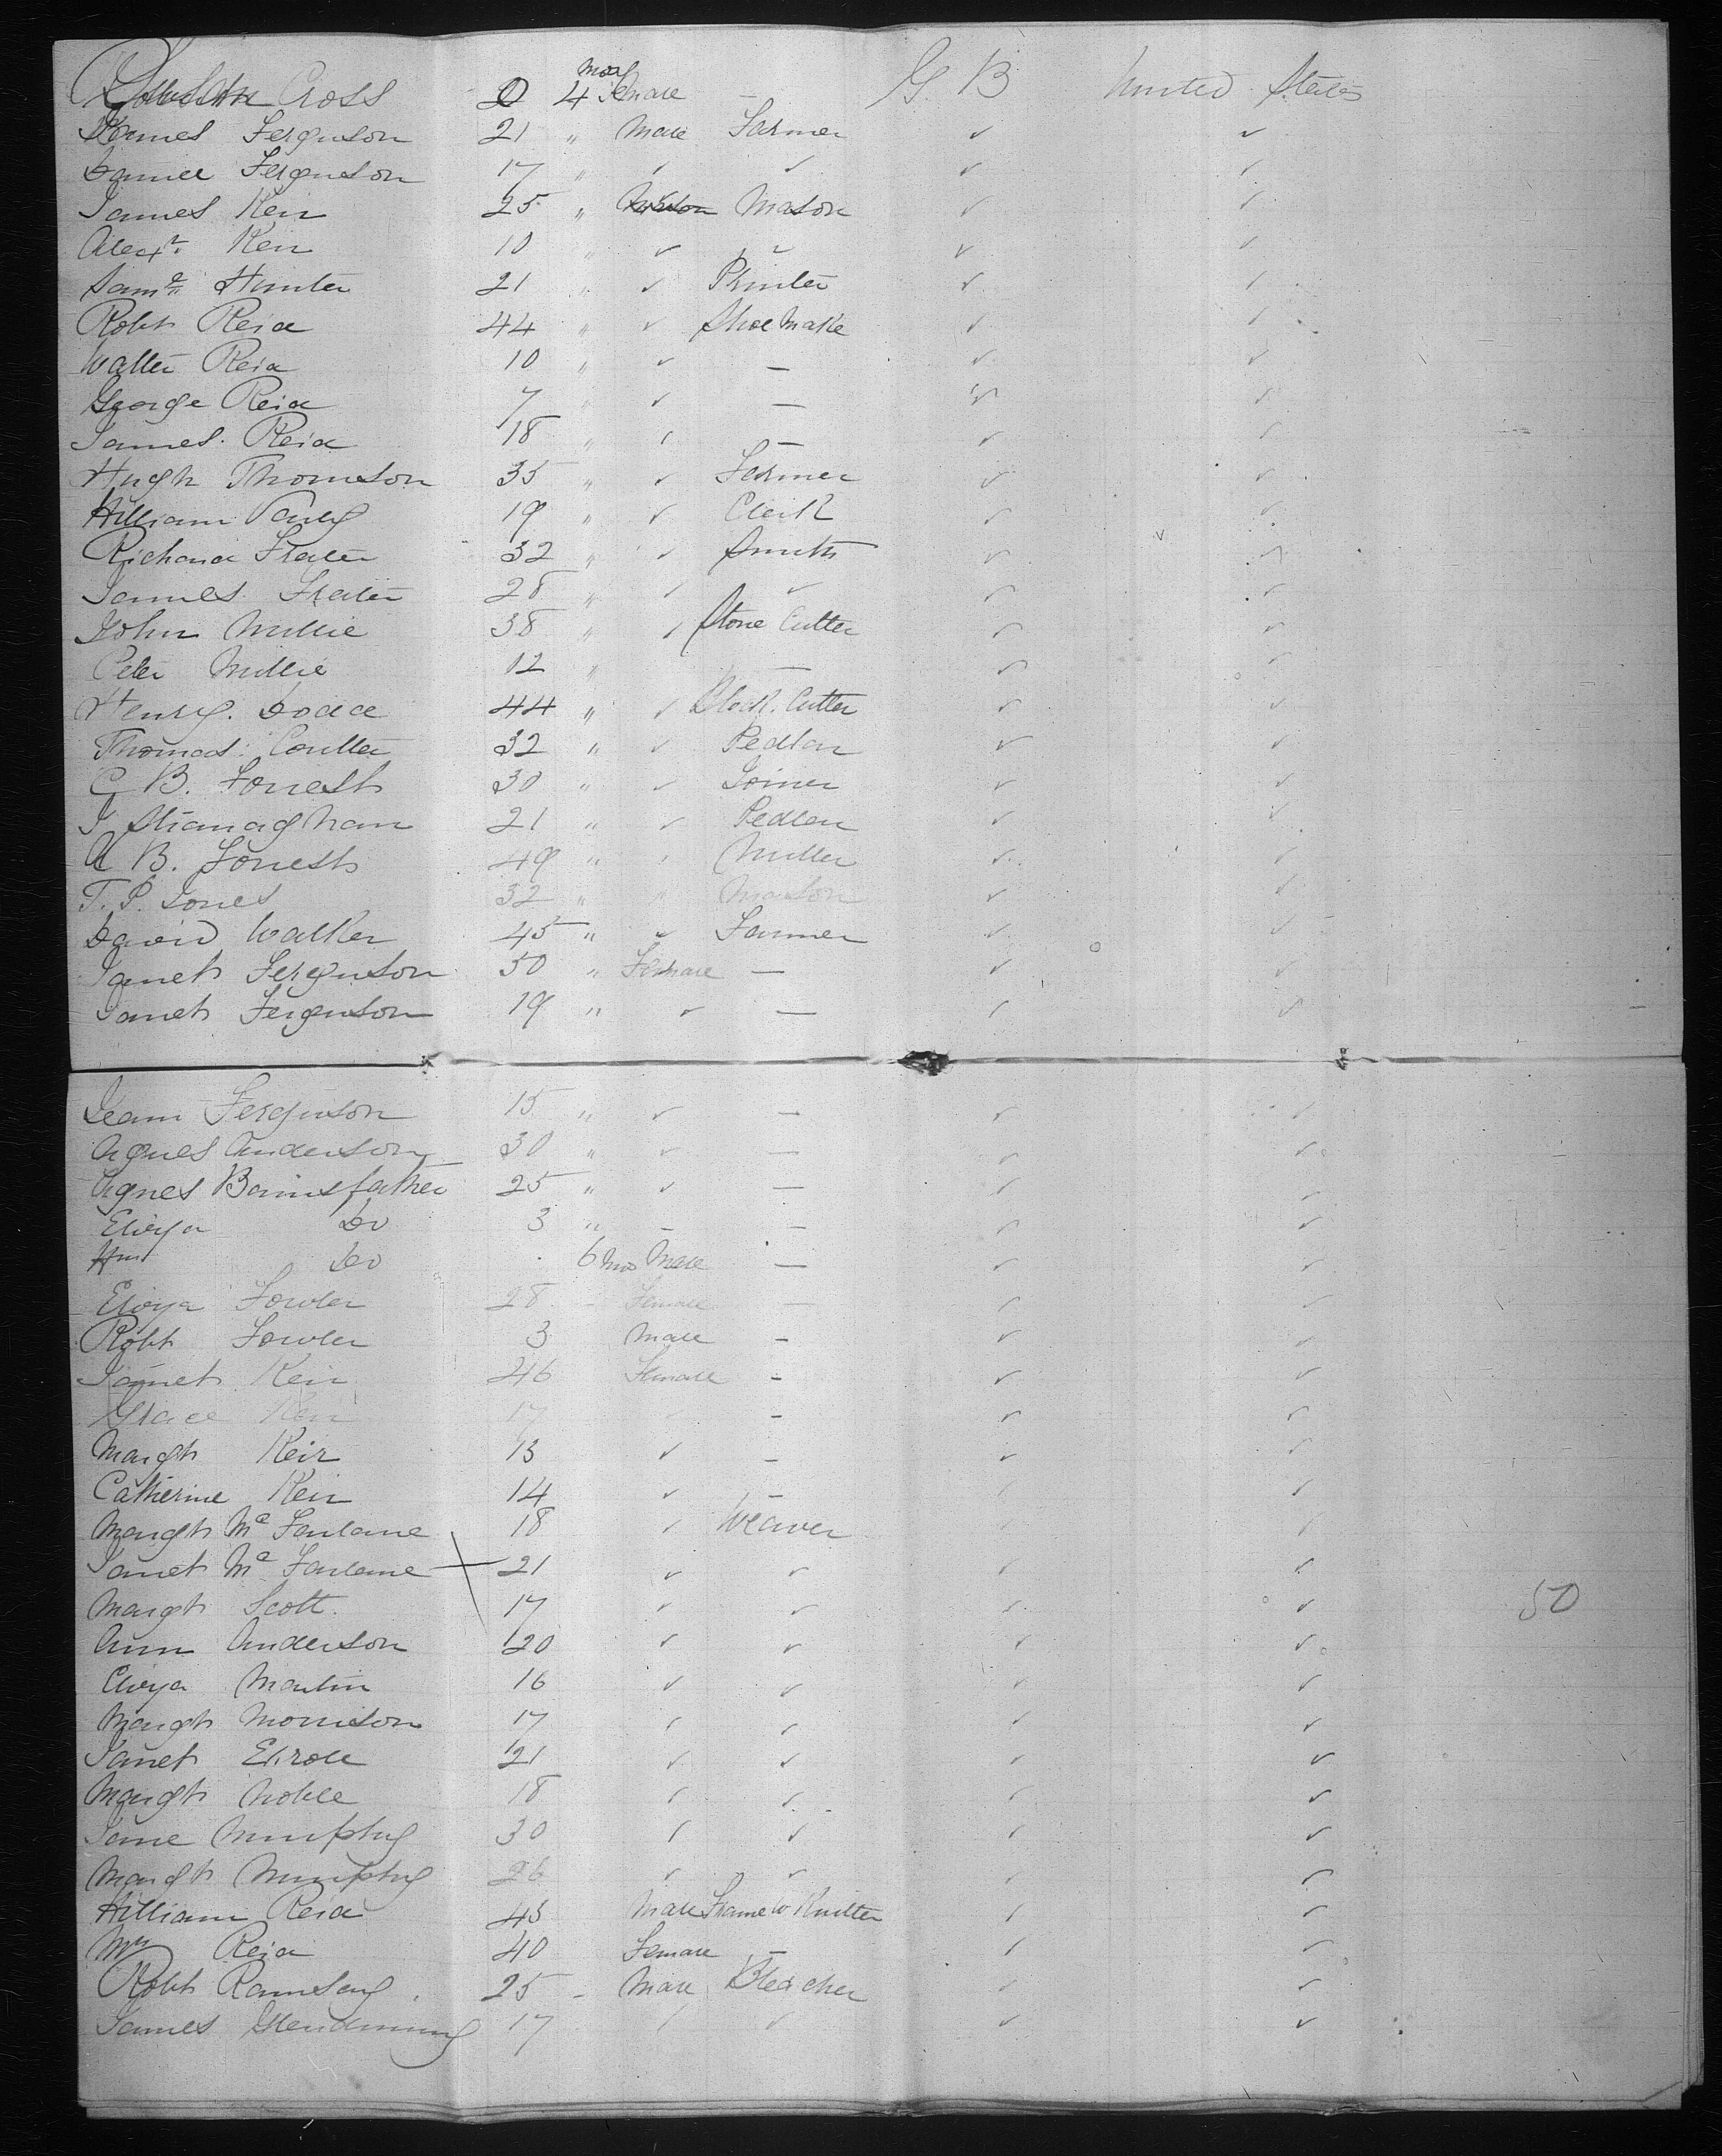 Cross 0 4 mos Female — G. B United States
James Ferguson 21 " Male Farmer ✓ ✓
Daniel Ferguson 17 " ✓ ✓ ✓ ✓
James Keir 25 " Mason Mason ✓ ✓
Alexr Keir 10 " ✓ ✓ ✓ ✓
Saml Hunter 21 " ✓ Printer ✓ ✓
Robt Reid 44 " ✓ Shoe Make ✓ ✓
Walter Reid 10 " ✓ — ✓ ✓
George Reid 7 " ✓ — ✓ ✓
James Reid 18 " ✓ — ✓ ✓
Hugh Thomson 35 " ✓ Farmer ✓ ✓
William 19 " ✓ Clerk ✓ ✓
Richard Frater 32 " ✓ Smith ✓ ✓
James Frater 28 " ✓ ✓ ✓ ✓
John Millie 38 " ✓ Stone Cutter ✓ ✓
Peter Millie 12 " — ✓ ✓
Henry Dodd 44 " ✓ Block Cutter ✓ ✓
Thomas Coulter 32 " ✓ Pedlar ✓ ✓
C B. Forrest 30 " ✓ Joiner ✓ ✓
J Stranaghan 21 " ✓ Pedler ✓ ✓
A B. Forrest 49 " ✓ Miller ✓ ✓
T. P. Jones 32 " " Mason ✓ ✓
David Walker 45 " ✓ Farmer ✓ ✓
Janet Ferguson 50 " Female — ✓ ✓
Janet Ferguson 19 " ✓ — ✓ ✓
Jean Ferguson 15 " ✓ — ✓ ✓
Agnes Anderson 30 " ✓ — ✓ ✓
Agnes Bairnsfather 25 " ✓ — ✓ ✓
Eliza Do 3 " — — ✓ ✓
Wm Do 6 mos Male — ✓ ✓
Eliza Fowler 28 Female — ✓ ✓
Robt Fowler 3 Male — ✓ ✓
Janet Keir 46 Female — ✓ ✓
Grace Keir 17 — ✓ ✓
Margt Keir 13 ✓ — ✓ ✓
Catherine Keir 14 ✓ — ✓ ✓
Margt Mc Farlane 18 ✓ Weaver ✓ ✓
Janet Mc Farlane 21 ✓ ✓ ✓ ✓
Margt Scott 17 ✓ ✓ ✓ ✓ 50
Ann Anderson 20 ✓ ✓ ✓ ✓
Eliza Martin 16 ✓ ✓ ✓ ✓
Margt Morrison 17 ✓ ✓ ✓ ✓
Janet 21 ✓ ✓ ✓ ✓
Margt Noble 18 ✓ ✓ ✓ ✓
Jane Murphy 30 ✓ ✓ ✓ ✓
Margt Murphy 26 ✓ ✓ ✓ ✓
William Reid 43 Male Frame W Knitter ✓ ✓
Mrs Reid 40 Female — ✓ ✓
Robt Ramsay 25 Male Bleacher ✓ ✓
James Glendinning 17 ✓ ✓ ✓ ✓